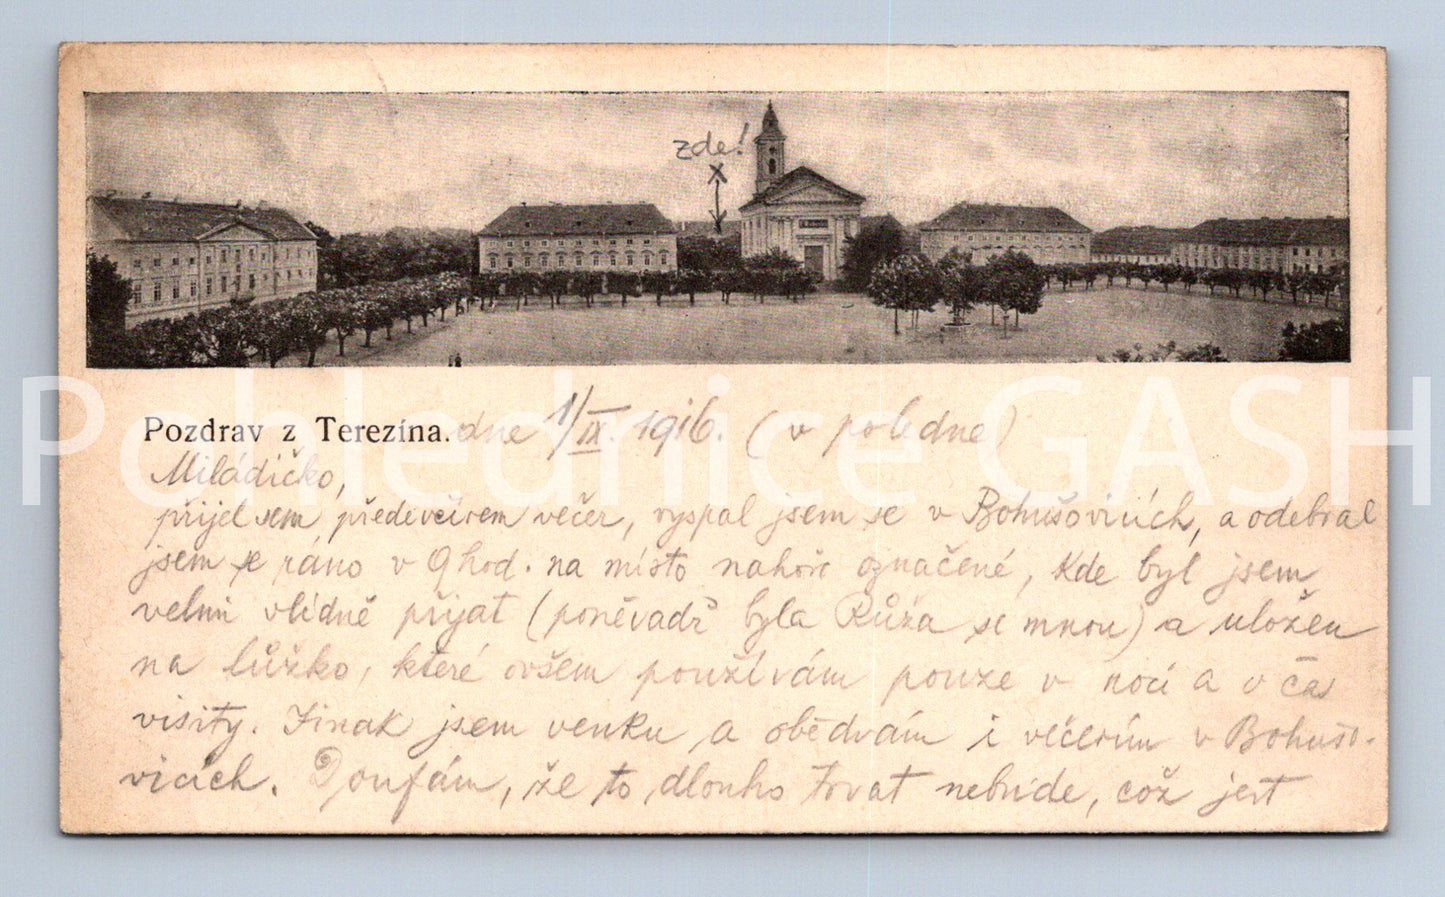 zde!
x
Pozdrav z Terezína. dne 1/IX. 1916. (v poledne)
Pohlednice GASH
Miládičko,
přijel jsem předevčírem večer, vyspal jsem se v Bohušovicích, a odebral
jsem se ráno v 9 hod. na místo nahoře označené, kde byl jsem
velmi vlídně přijat (poněvadž byla Růža se mnou) a uložen
na lůžko, které ovšem používám pouze v noci a v čas
visity. Jinak jsem venku a obědvám i večeřím v Bohušo-
vicích. Doufám, že to dlouho trvat nebude, což jest